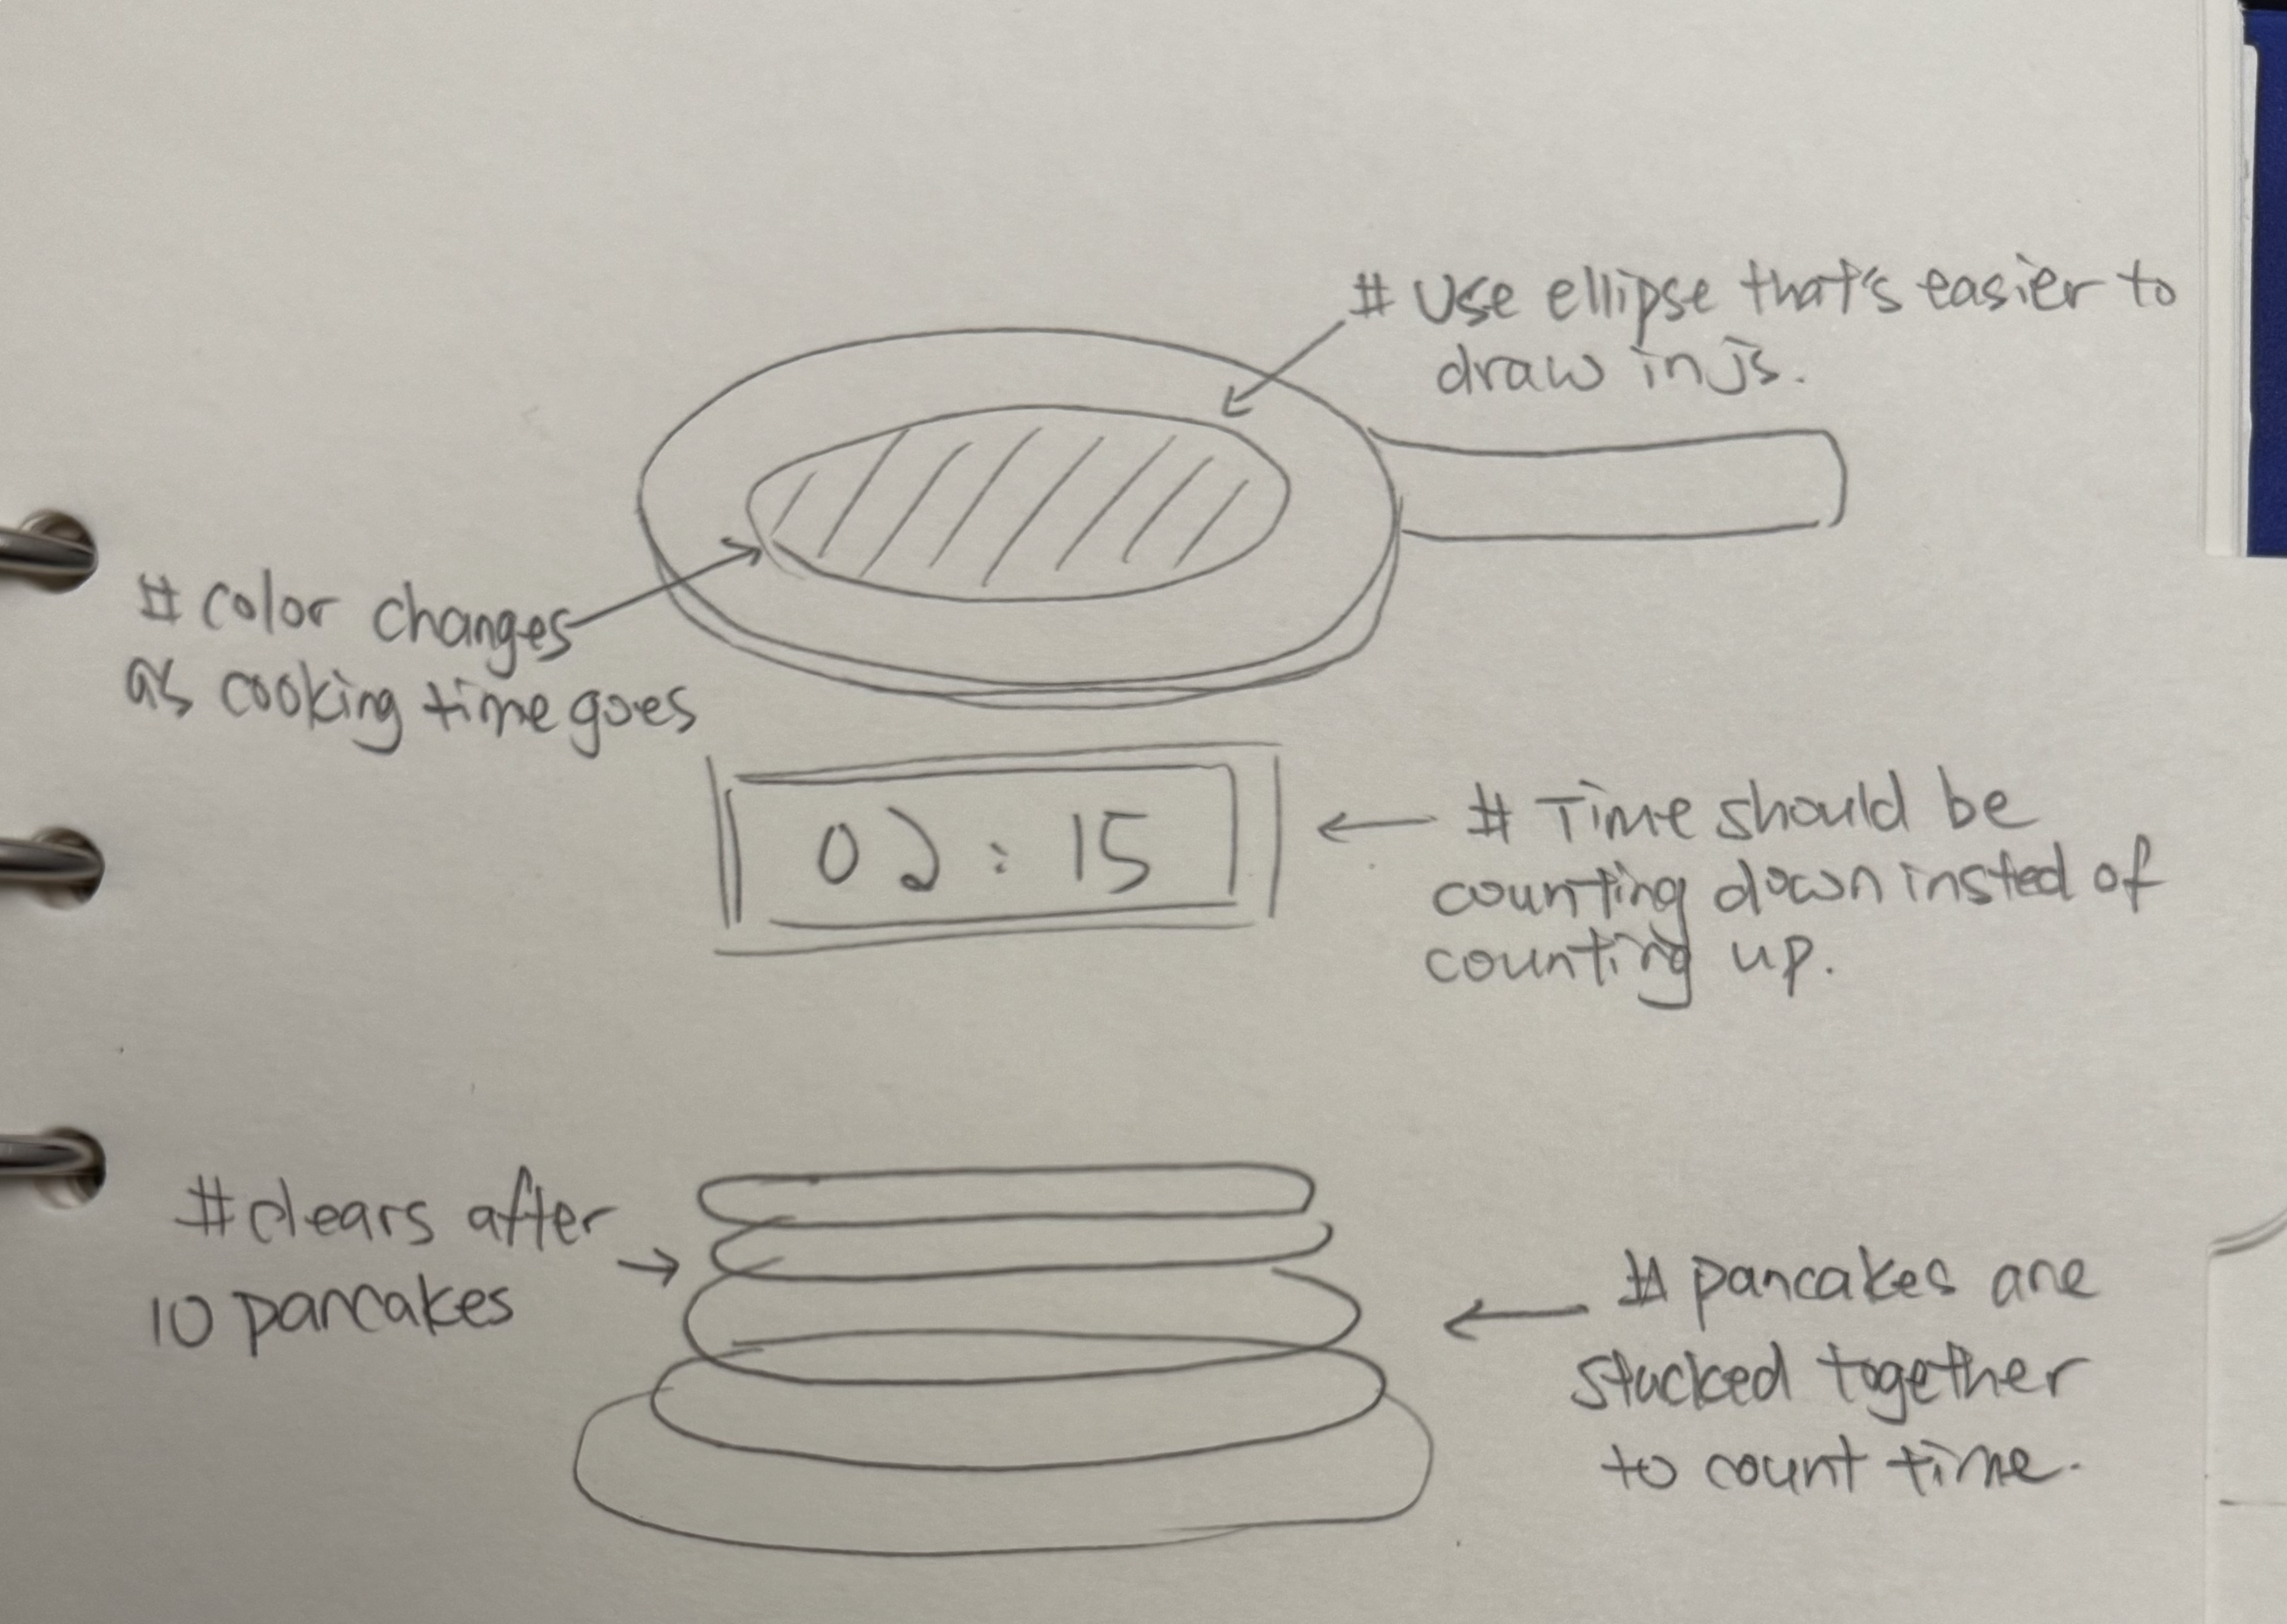 # Use ellipse that's easier to
draw in js.
# color changes
as cooking time goes
02:15
# Time should be
counting down insted of
counting up.
#clears after
10 pancakes
# pancakes are
stacked together
to count time.